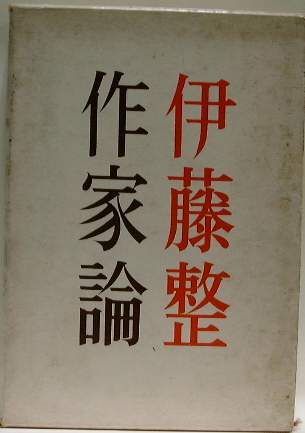 伊藤整
作家論